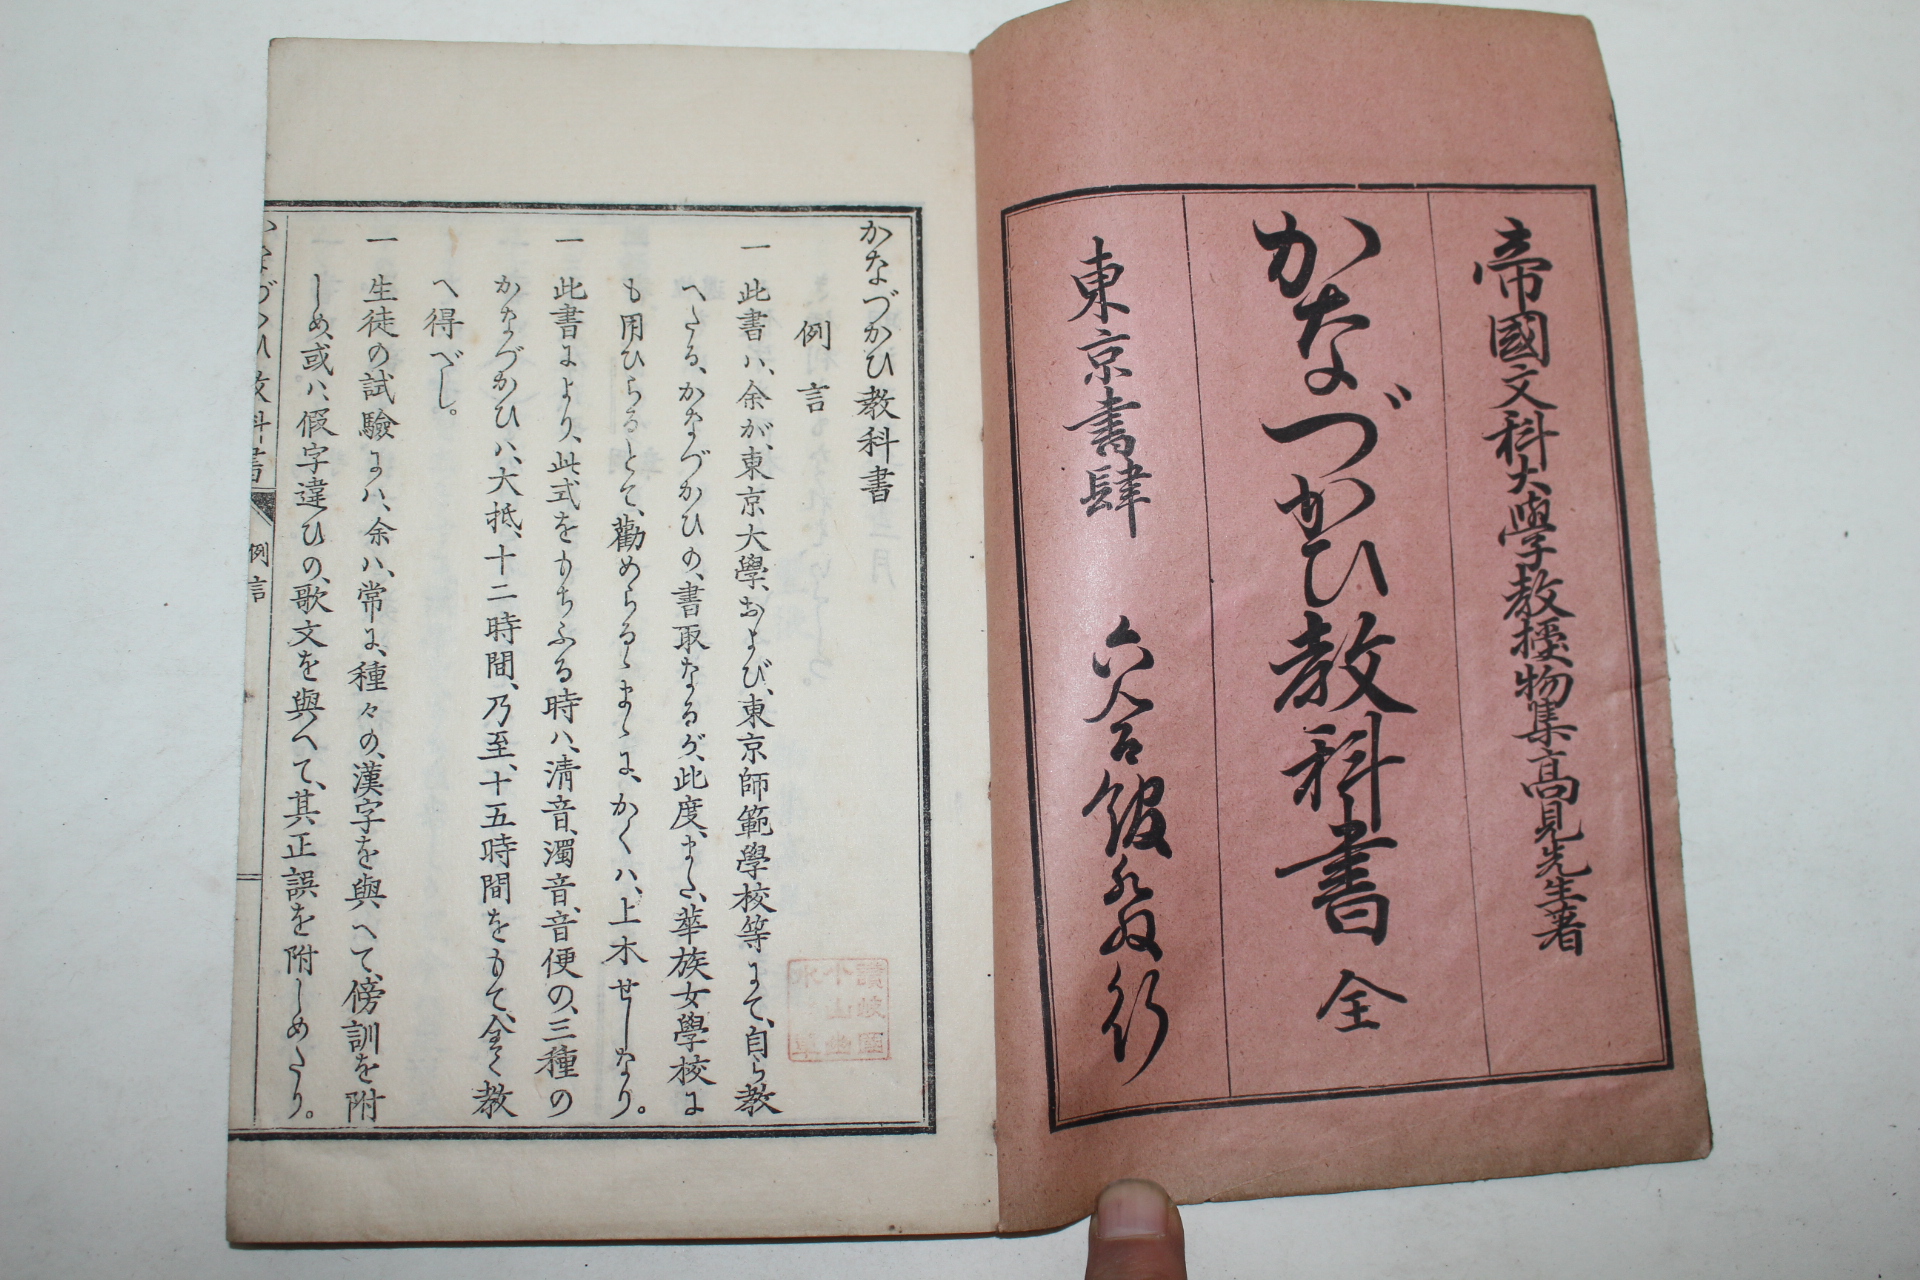 帝國文科大學教授物集高見先生著
かなづかひ教科書 全
東京書肆 六合館發行
かなづかひ教科書
例言
一 此書ハ、余が、東京大學、および、東京師範學校等にて、自ら教
へたる、かなづかひの、書取なるが、此度、また、華族女學校に
も用ひらるとて、勸めらるゝまゝに、かくハ、上木せしなり。
一 此書により、此式をもちふる時ハ、清音、濁音、音便の、三種の
かなづかひハ、大抵、十二時間、乃至、十五時間をもて、全く教
へ得べし。
一 生徒の試驗にハ、余ハ、常に、種々の、漢字を與へて、傍訓を附
しめ、或ハ、假字違ひの、歌文を與へて、其正誤を附しめたり。
かなづかひ教科書 例言
讃岐國
小山幽